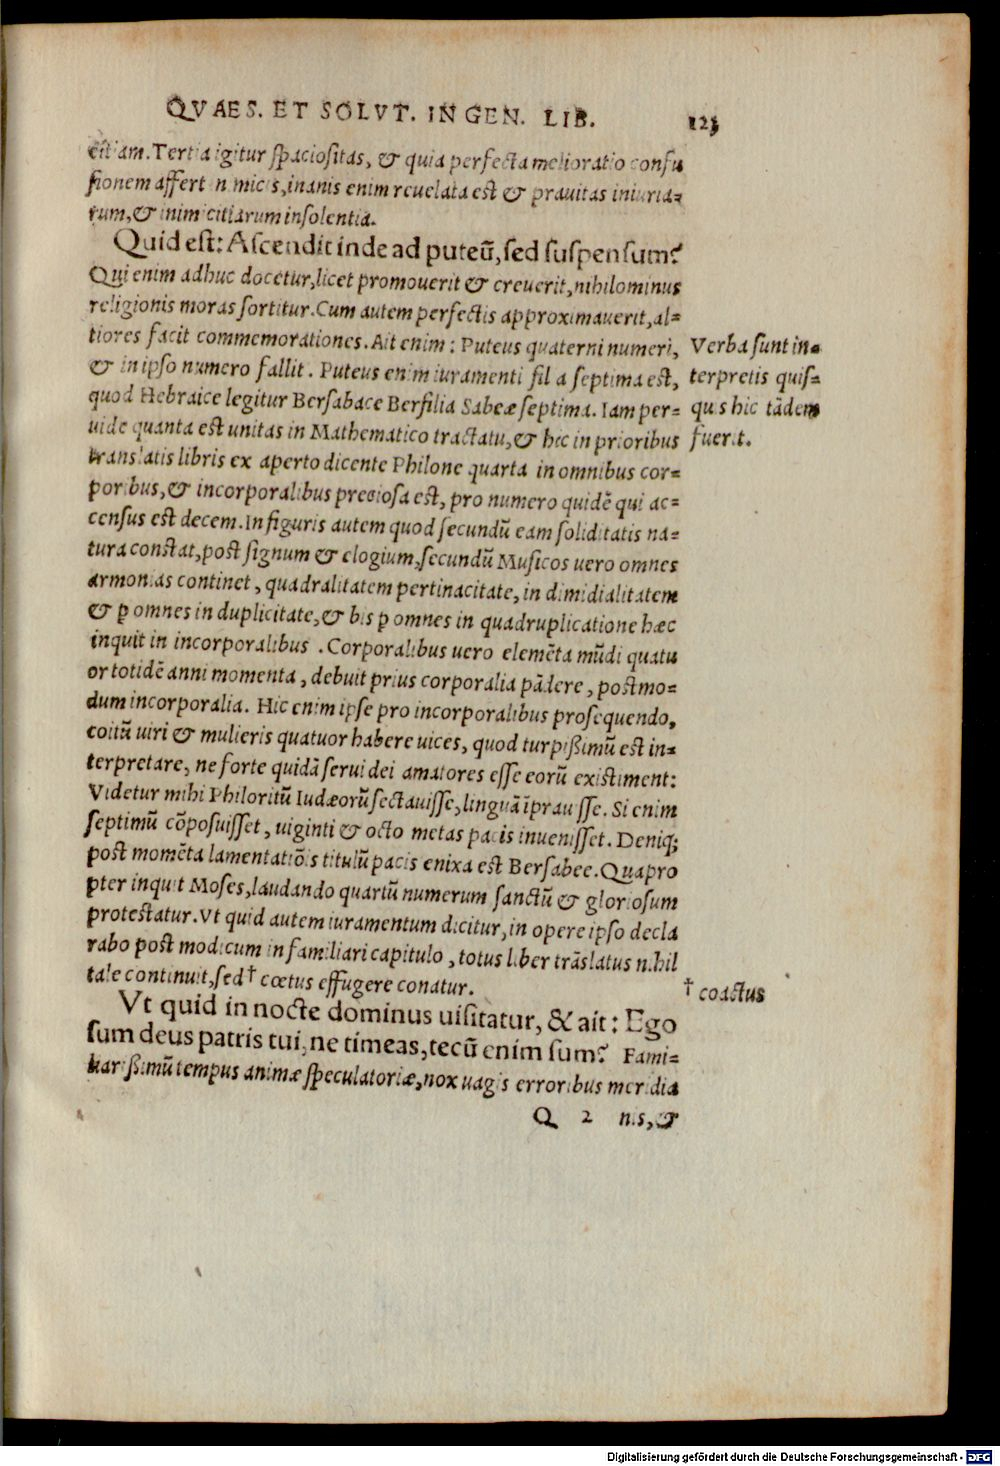 QVAES. ET SOLVT. IN GEN. LIB. 123
citiam. Tertia igitur spaciositas, & quia perfecta melioratio confu
sionem affert inimicis, inanis enim reuelata est & prauitas iniuria=
rum, & inimicitiarum insolentia.
Quid est: Ascendit inde ad puteũ, sed suspensum?
Qui enim adhuc docetur, licet promouerit & creuerit, nihilominus
religionis moras sortitur. Cum autem perfectis approximauerit, al=
tiores facit commemorationes. Ait enim: Puteus quaterni numeri,
& in ipso numero fallit. Puteus enim iuramenti filia septima est,
quod Hebraice legitur Bersabace Berfilia Sabeæ septima. Iam per=
uide quanta est unitas in Mathematico tractatu, & hic in prioribus
translatis libris ex aperto dicente Philone quarta in omnibus cor=
poribus, & incorporalibus preciosa est, pro numero quidẽ qui ac=
census est decem. In figuris autem quod secundũ eam soliditatis na=
tura constat, post signum & elogium, secundũ Musicos uero omnes
armonias continet, quadralitatem pertinacitate, in dimidialitatem
& ꝑ omnes in duplicitate, & bis ꝑ omnes in quadruplicatione hæc
inquit in incorporalibus. Corporalibus uero elemẽta mũdi quatu
or totidẽ anni momenta, debuit prius corporalia pãdere, postmo=
dum incorporalia. Hic enim ipse pro incorporalibus prosequendo,
coitũ uiri & mulieris quatuor habere uices, quod turpißimũ est in=
terpretare, ne forte quidã serui dei amatores esse eorũ existiment:
Videtur mihi Philoritũ Iudæorũ sectauisse, linguã ĩprauisse. Si enim
septimũ cõposuisset, uiginti & octo metas pacis inuenisset. Deniq;
post momẽta lamentatiõis titulũ pacis enixa est Bersabee. Quapro
pter inquit Moses, laudando quartũ numerum sanctũ & gloriosum
protestatur. Vt quid autem iuramentum dicitur, in opere ipso decla
rabo post modicum in familiari capitulo, totus liber trãslatus nihil
tale continuit, sed † cœtus effugere conatur.
Vt quid in nocte dominus uisitatur, & ait: Ego
sum deus patris tui, ne timeas, tecũ enim sum? Fami=
liarißimũ tempus animæ speculatoriæ, nox uagis erroribus meridia
Q 2 nis, &
Verba sunt in=
terpretis quis=
quis hic tãdem
fuerit.
† coactus
Digitalisierung gefördert durch die Deutsche Forschungsgemeinschaft - DFG